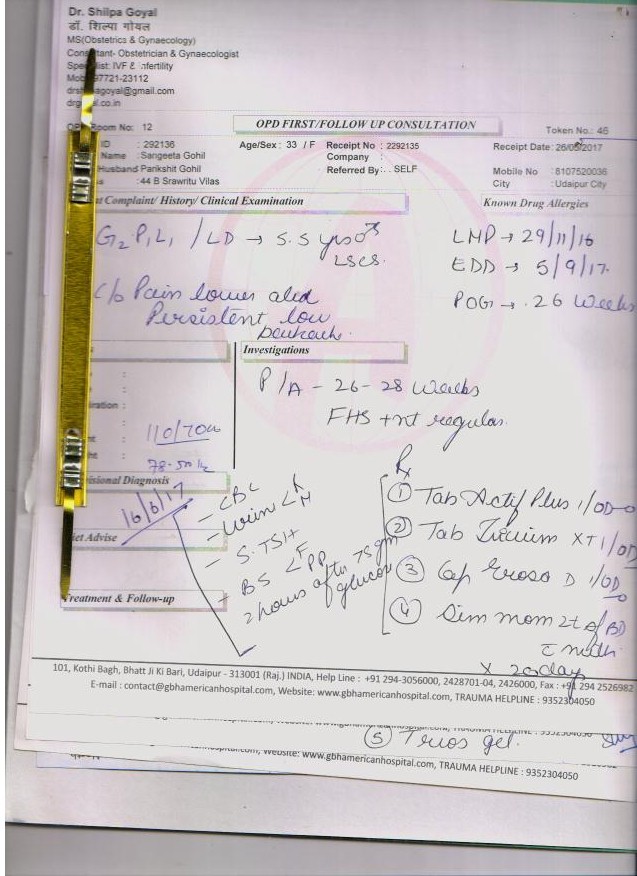 Dr. Shilpa Goyal
डॉ. शिल्पा गोयल
MS(Obstetrics & Gynaecology)
Consultant- Obstetrician & Gynaecologist
Specialist: IVF & Infertility
Mob 97721-23112
drsh agoyal@gmail.com
drg l.co.in
OPD FIRST/FOLLOW UP CONSULTATION
Room No: 12
Token No.: 46
ID : 292136
Age/Sex : 33 / F
Receipt No : 2292135
Receipt Date: 26/05/2017
Name : Sangeeta Gohil
Company :
Husband Parikshit Gohil
Referred By : SELF
Mobile No : 8107520036
s : 44 B Srawritu Vilas
City : Udaipur City
t Complaint/ History/ Clinical Examination
Known Drug Allergies
G2 P1 L1 / LD → 5.5 yrs
LSCS.
LMP → 29/11/16
EDD → 5/9/17.
POG → 26 Weeks
c/o Pain lower abd
Persistent low
backache.
Investigations
P/A - 26-28 Weeks
FHS +nt regular.
iration :
110/70
78.50 k
isional Diagnosis
16/6/17
iet Advise
Treatment & Follow-up
- CBC
- Urine
- S. TSH
- BS < F PP
2 hours after 75 gm
glucose
Rx
① Tab Actif Plus 1/OD
② Tab XT 1/OD
③ Cap D 1/OD
④ mom 2t of BD
X 20 day
101, Kothi Bagh, Bhatt Ji Ki Bari, Udaipur - 313001 (Raj.) INDIA, Help Line : +91 294-3056000, 2428701-04, 2426000, Fax : +91 294 2526982
E-mail : contact@gbhamericanhospital.com, Website: www.gbhamericanhospital.com, TRAUMA HELPLINE : 9352304050
⑤ gel.
ospital.com, Website: www.gbhamericanhospital.com, TRAUMA HELPLINE : 9352304050